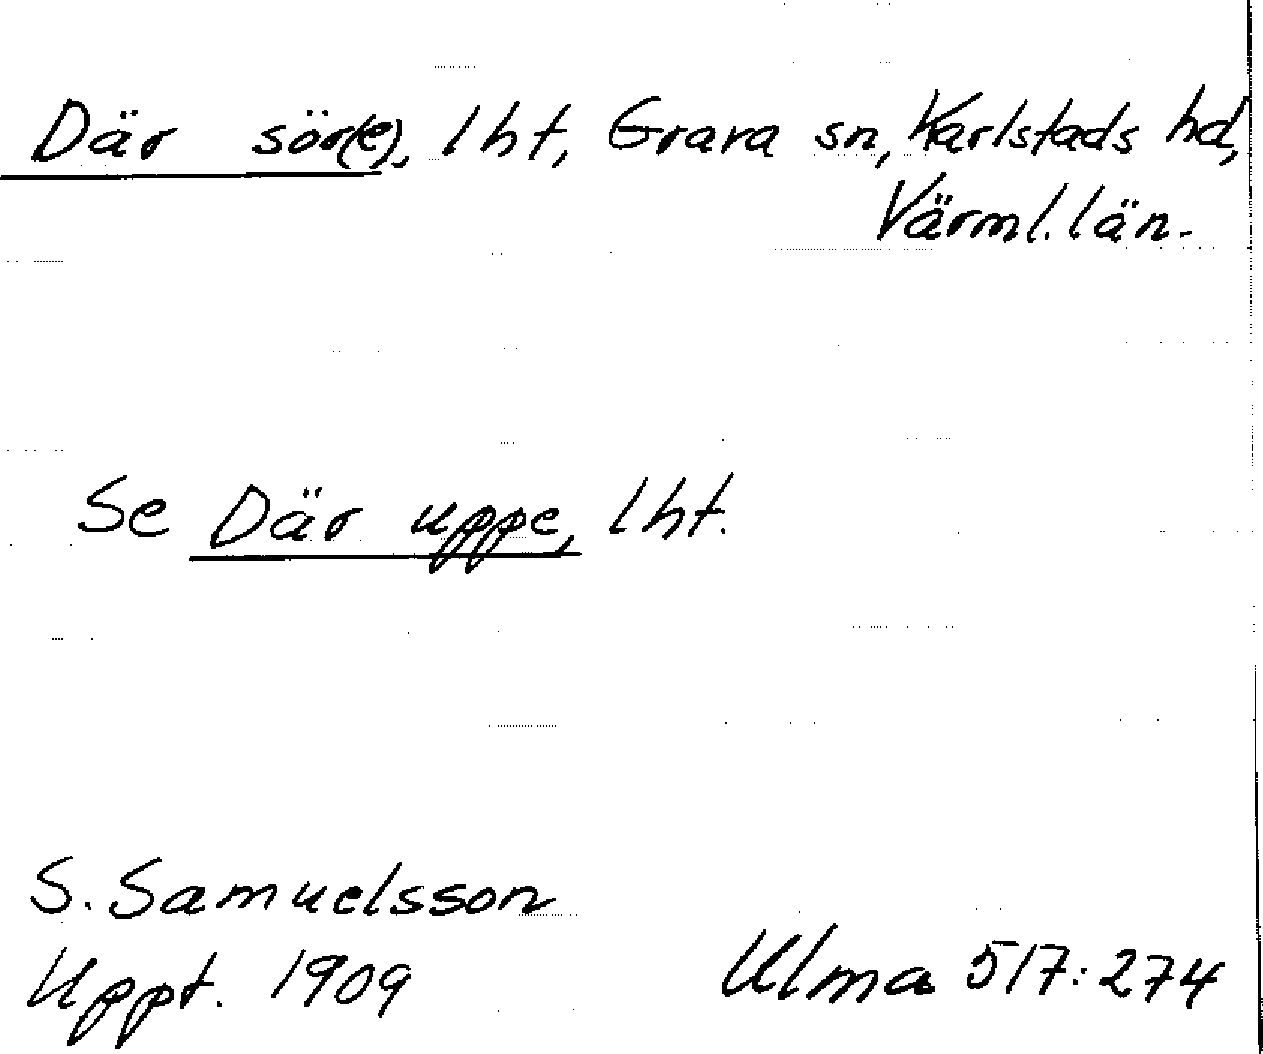 Där sör(e), lht, Grava sn, Karlstads hd,
Värml. län.
Se Där uppe, lht.
S. Samuelsson
Uppt. 1909 Ulma 517:274